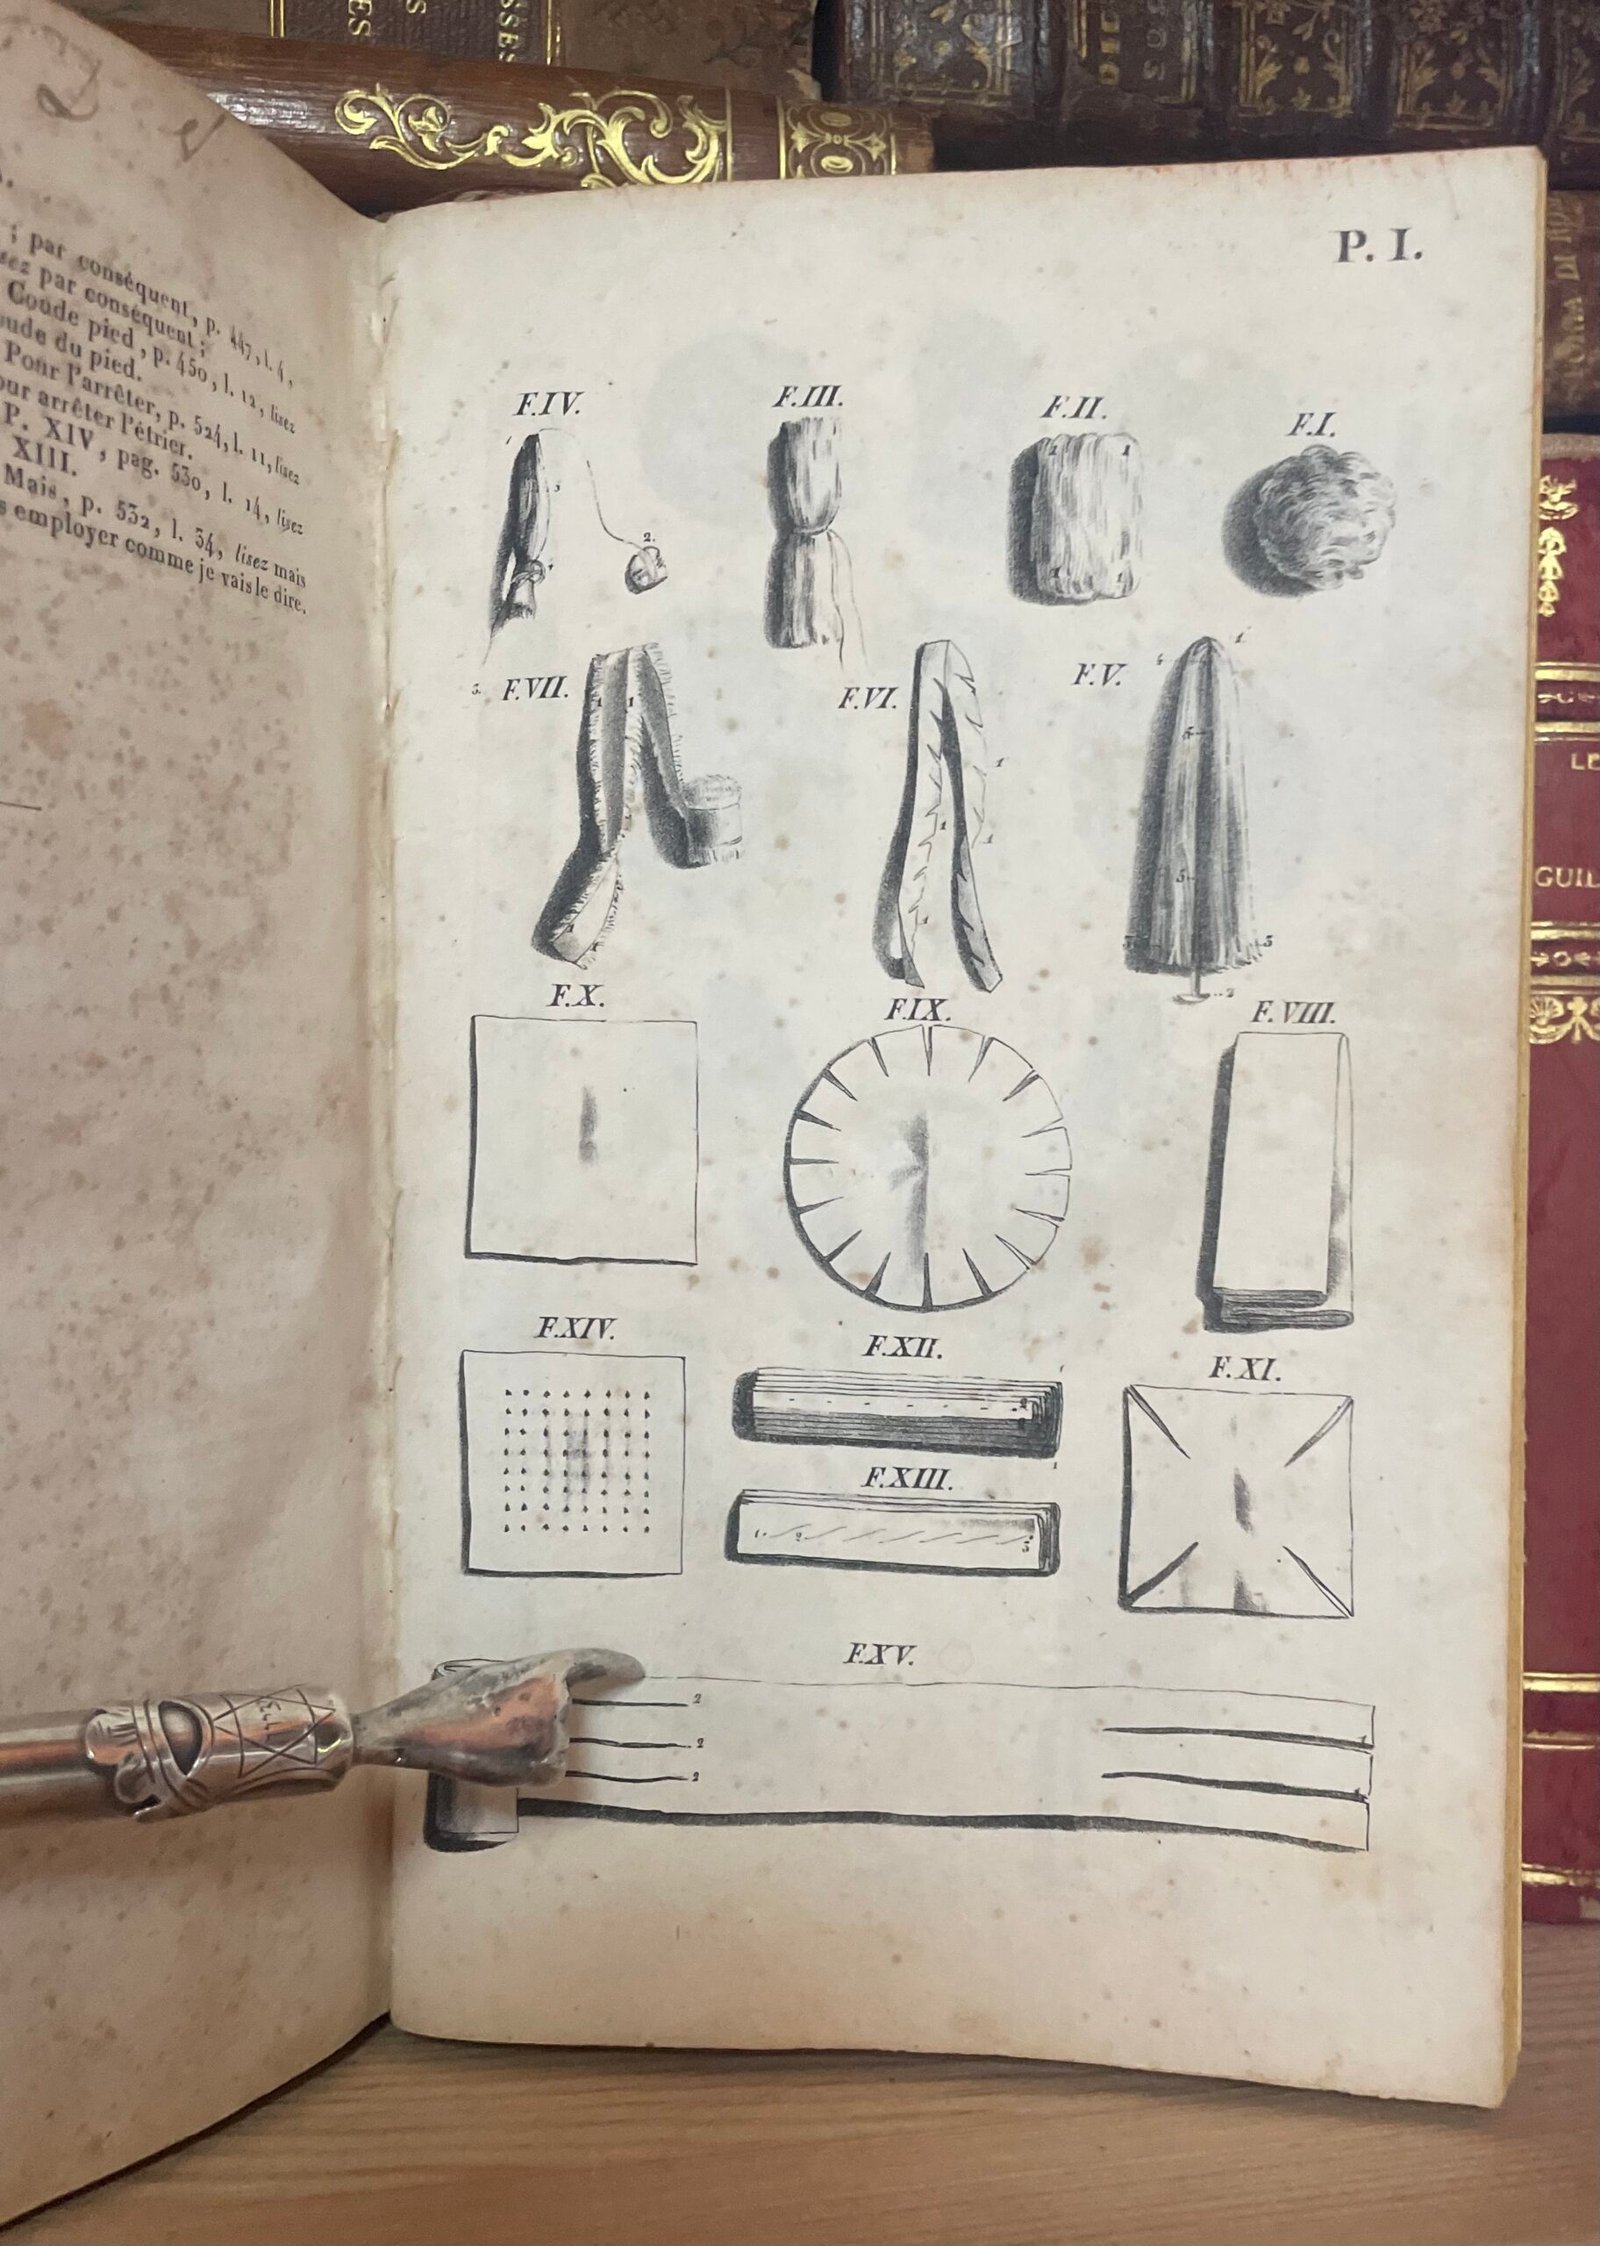 ; par conséquent, p. 447, l. 4,
sez par conséquent;
Coude pied, p. 450, l. 12, lisez
oude du pied.
Pour l'arrêter, p. 524, l. 11, lisez
our arrêter l'étrier.
P. XIV, pag. 530, l. 14, lisez
XIII.
Mais, p. 532, l. 34, lisez mais
s employer comme je vais le dire.
P. I.
F.IV.
F.III.
F.II.
F.I.
F.VII.
F.VI.
F.V.
F.X.
F.IX.
F.VIII.
F.XIV.
F.XII.
F.XI.
F.XIII.
F.XV.
2
2
2
LE
GUIL